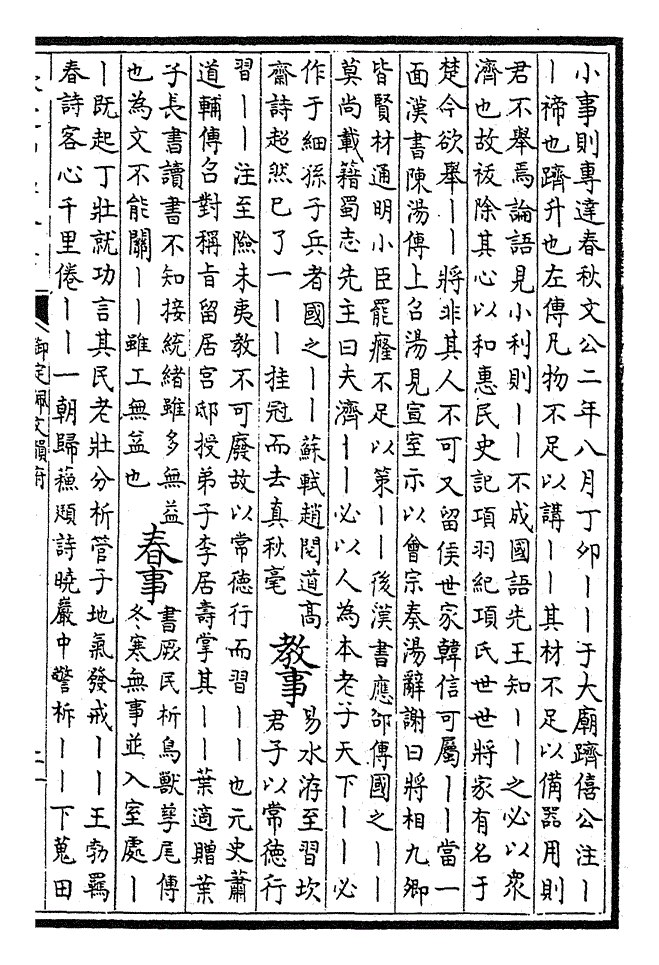 小事則專達春秋文公二年八月丁卯——于大廟躋僖公注—
—禘也躋升也左傳凡物不足以講——其材不足以備器用則
君不舉焉論語見小利則——不成國語先王知——之必以衆
濟也故袚除其心以和惠民史記項羽紀項氏世世將家有名于
楚今欲舉——將非其人不可又留侯世家韓信可屬——當一
面漢書陳湯傳上召湯見宣室示以會宗奏湯辭謝曰將相九卿
皆賢材通明小臣罷癃不足以第——後漢書應卲傳國之——
莫尚載籍蜀志先主曰夫濟——必以人為本老子天下——必
作于細孫子兵者國之——蘇軾趙閱道高
齋詩超然已了一——挂冠而去真秋毫
教事
易水洊至習坎
君子以常徳行
習——注至險未夷教不可廢故以常徳行而習——也元史蕭
道輔傳召對稱旨留居宫邸授弟子李居壽掌其——葉適贈葉
子長書讀書不知接統緒雖多無益
也為文不能關——雖工無益也
春事
書厥民析鳥獸孳尾傳
冬寒無事並入室處—
—既起丁壯就功言其民老壯分析管子地氣發戒——王勃羈
春詩客心千里倦——一朝歸蘓頲詩曉嚴中警柝——下蒐田
御定佩文韻府